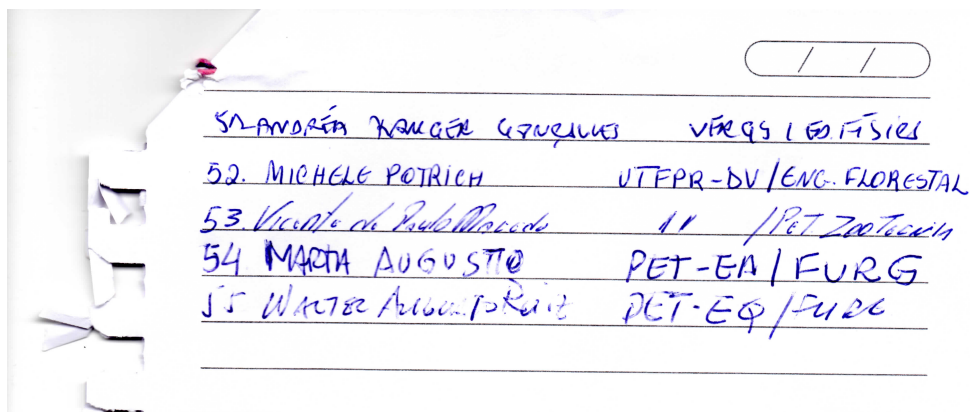 51. ANDRÉA KRUGER GONÇALVES UFRGS / ED. FÍSICA
52. MICHELE POTRICH UTFPR-DV / ENG. FLORESTAL
53. Vicente de Paulo Macedo 11 / PET Zootecnia
54 MARTA AUGUSTO PET-EA / FURG
55 WALTER AUGUSTO RUIZ PET-EQ / FURG